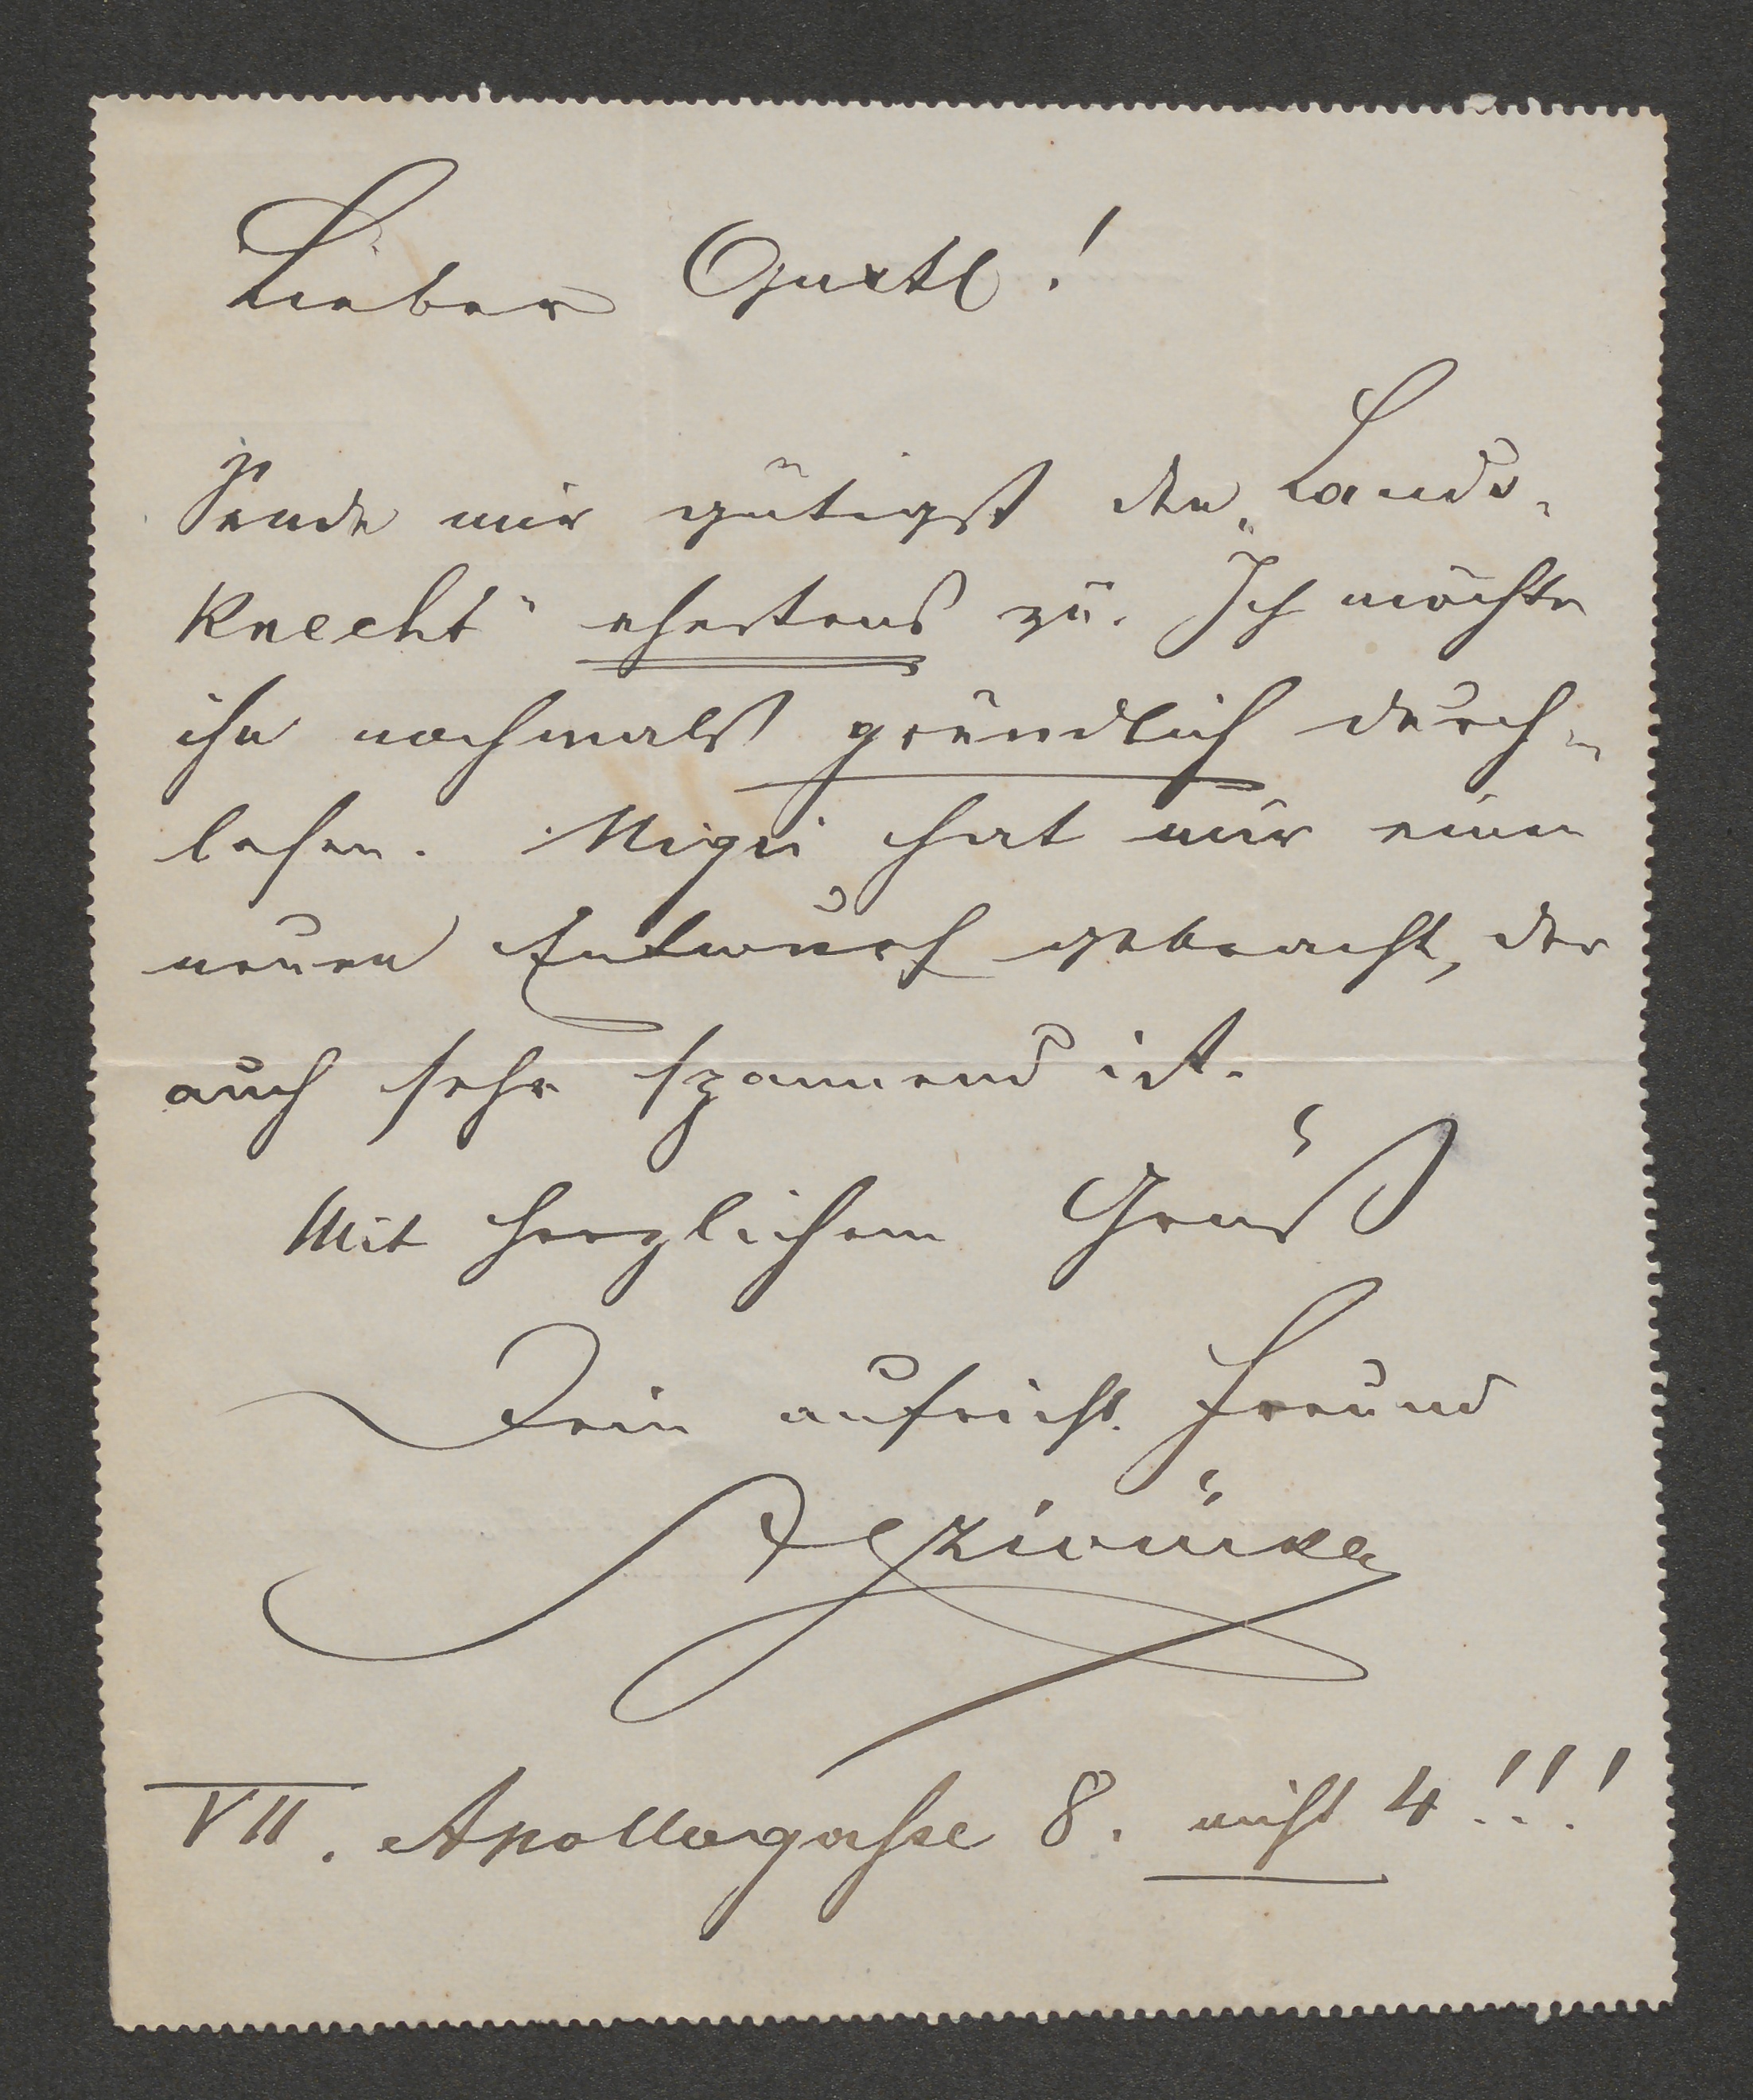 Lieber Gustl!
Sende mir gütigst den „Lands-
knecht“ ehestens zu. Ich möchte
ihn nochmals gründlich durch-
lesen. hat mir einen
neuen Entwurf gebracht, der
auch sehr spannend ist.
Mit herzlichem Gruß
Dein aufricht. Freund
VII. Apollogasse 8. nicht 4!!!